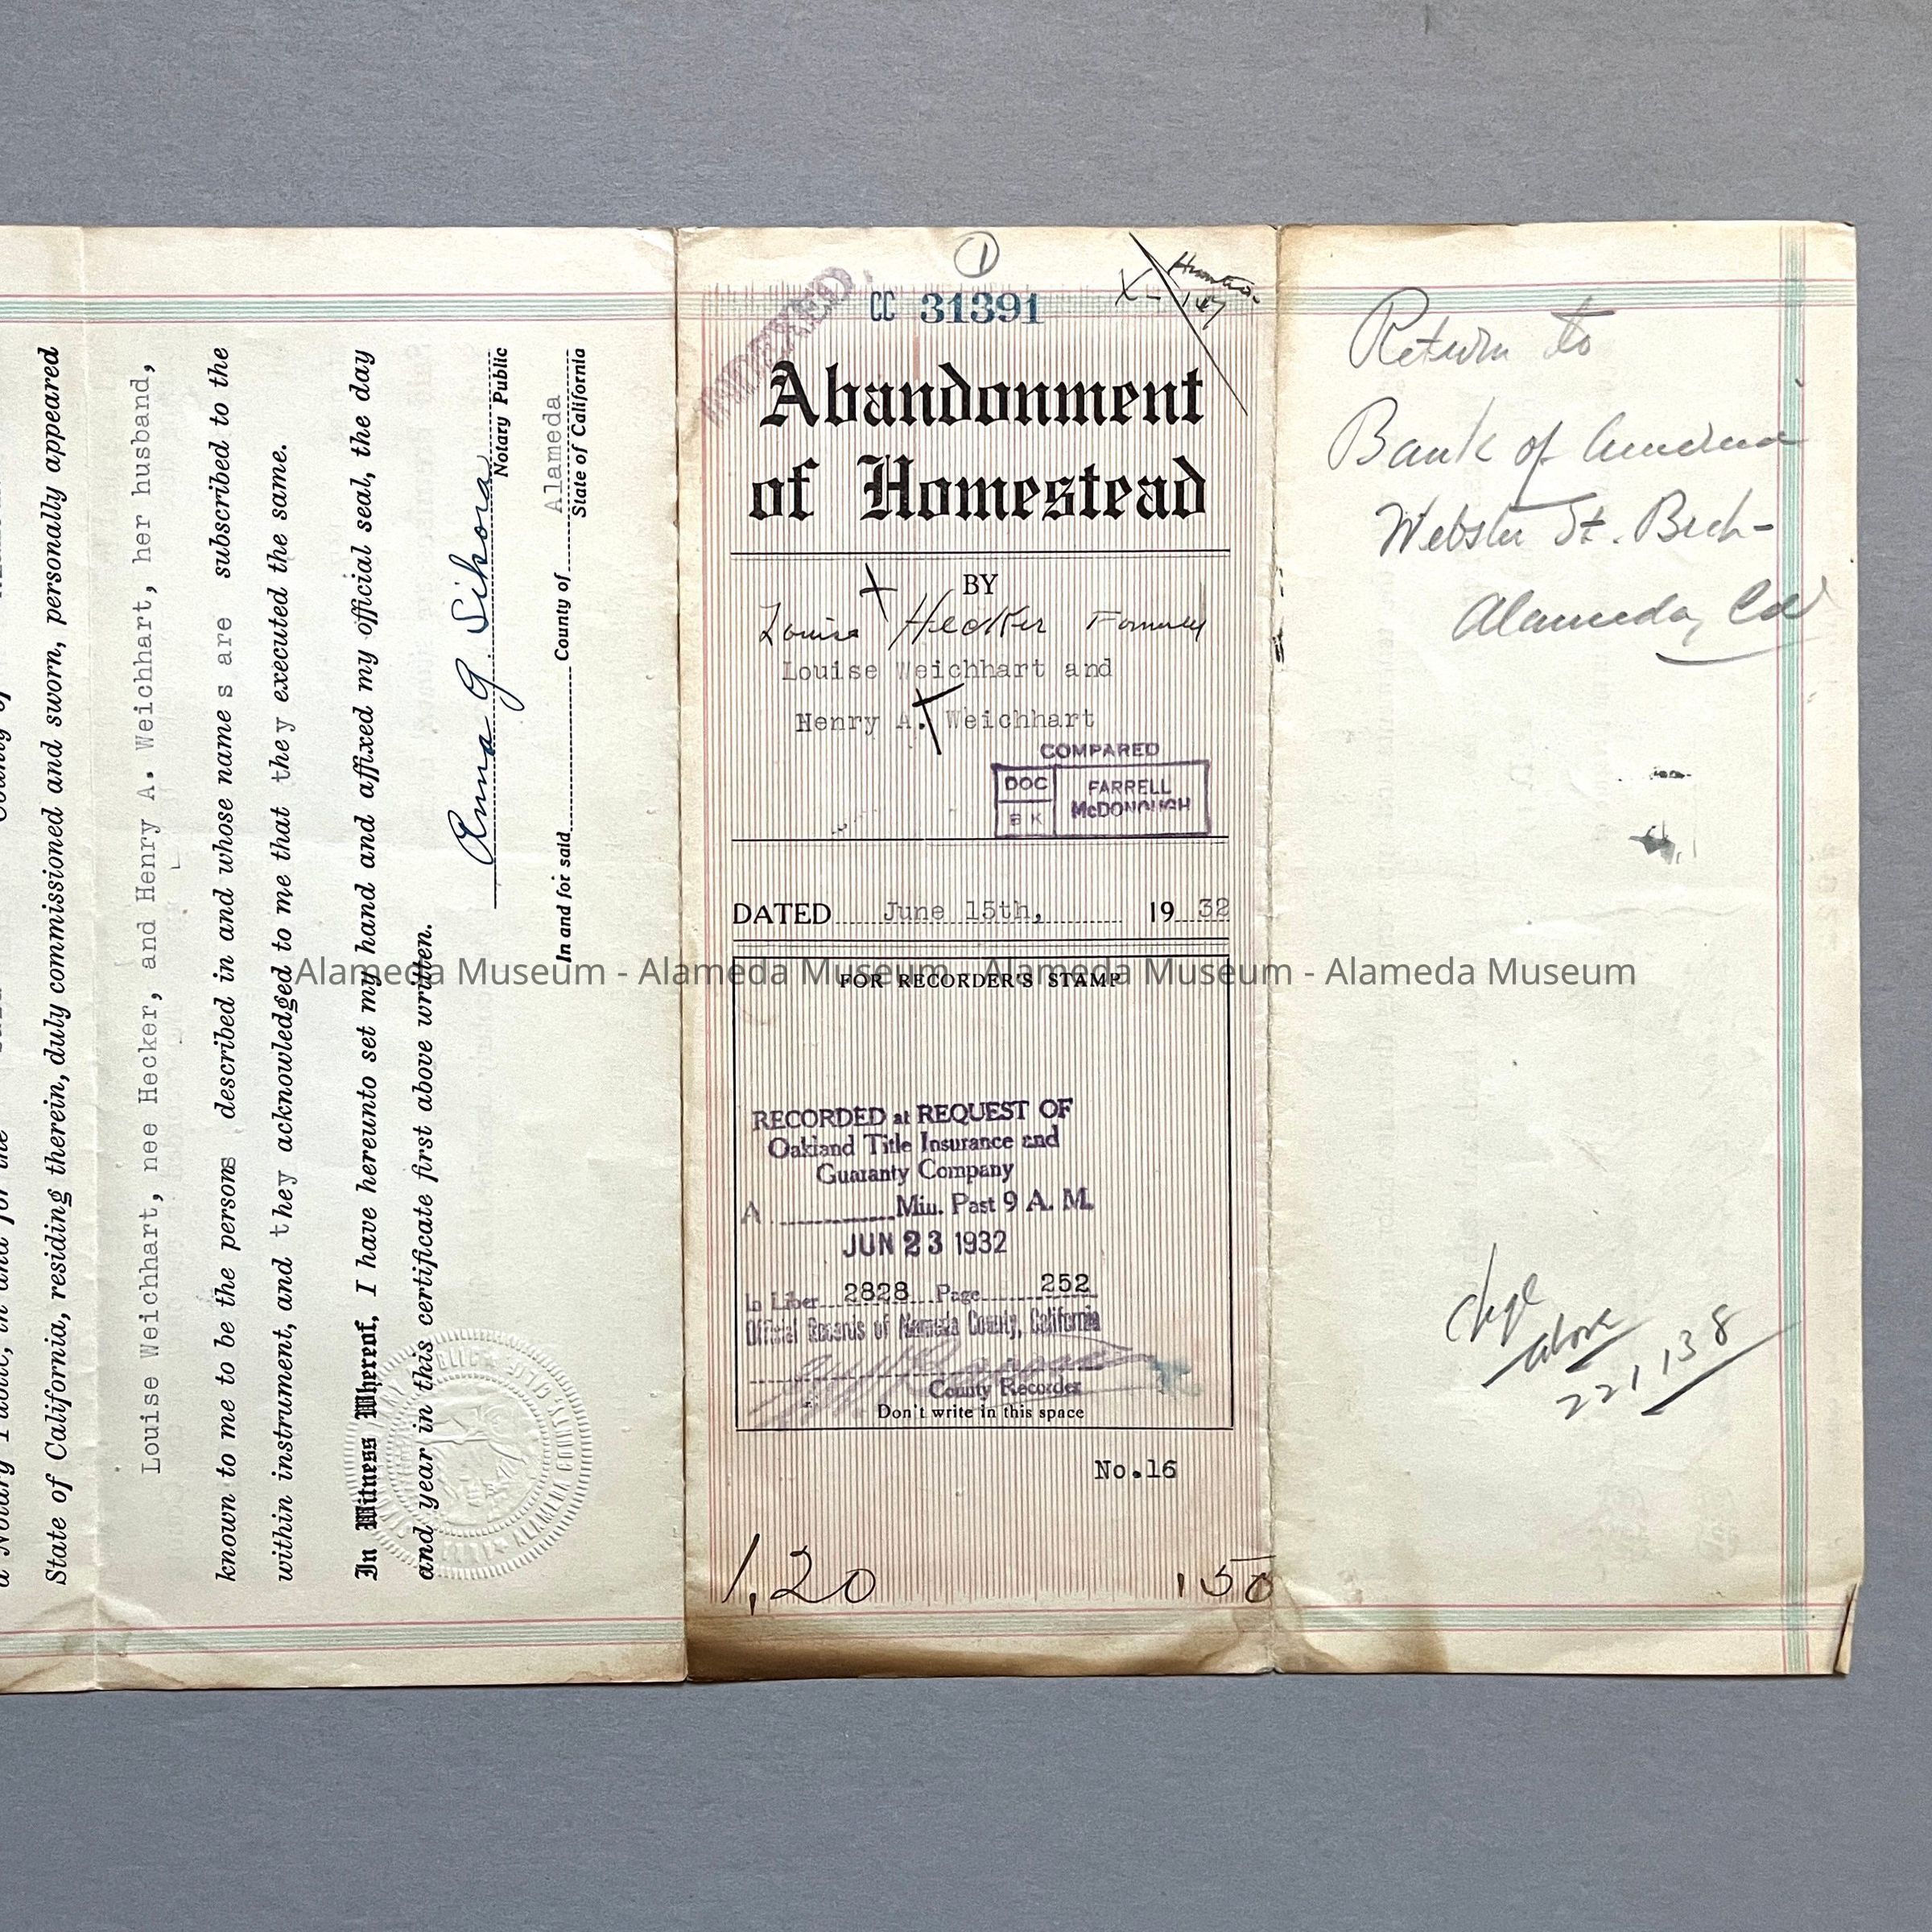 State of California, residing therein, duly commissioned and sworn, personally appeared
Louise Weichhart, nee Hecker, and Henry A. Weichhart, her husband,
known to me to be the persons described in and whose name s are subscribed to the
within instrument, and they acknowledged to me that they executed the same.
In Witness Whereof, I have hereunto set my hand and affixed my official seal, the day
and year in this certificate first above written.
Anna G. Sikora
Notary Public
In and for said County of Alameda
State of California
ALAMEDA COUNTY
1
INDEXED
CC 31391
X-
147
Abandonment
of Homestead
BY
Louise Hecker Formerly
Louise Weichhart and
Henry A. Weichhart
COMPARED
DOC
BK
FARRELL
McDONOUGH
DATED June 15th, 1932
FOR RECORDER'S STAMP
RECORDED at REQUEST OF
Oakland Title Insurance and
Guaranty Company
A Min. Past 9 A. M.
JUN 23 1932
In Liber 2828 Page 252
Official Records of Alameda County, California
County Recorder
Don't write in this space
No.16
1.20
.50
Return to
Bank of America
Webster St. Brch-
Alameda, Cal
chge
above
221138
Alameda Museum - Alameda Museum - Alameda Museum - Alameda Museum